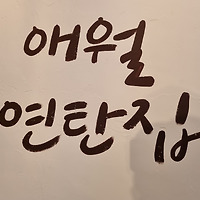 애월
연탄집